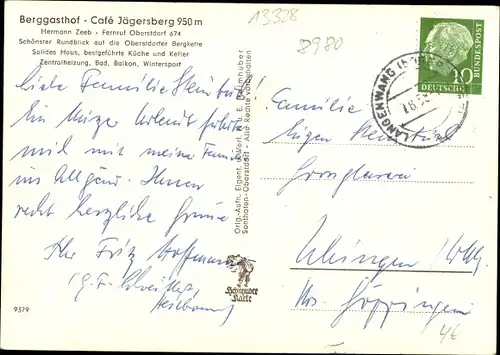 Berggasthof - Café Jägersberg 950 m
Hermann Zeeb - Fernruf Oberstdorf 674
Schönster Rundblick auf die Oberstdorfer Bergkette
Solides Haus, bestgeführte Küche und Keller
Zentralheizung, Bad, Balkon, Wintersport
13328
8980
Liebe Familie Steinbrück!
Ein kurzer Urlaub führte
mich mit meiner Familie
ins Allgäu. Ihnen
recht herzliche Grüße
Ihr Fritz Hoffmann
Heilbronn
9379
Orig.-Aufn. Eigent. u. Verl. H. u. E. Heimhuber
Sonthofen-Oberstdorf Alle Rechte vorbehalten
Heimhuber
Karte
10
DEUTSCHE
BUNDESPOST
LANGENWANG
Familie
Eugen
Uhingen / Wttbg
Krs. Göppingen
4€